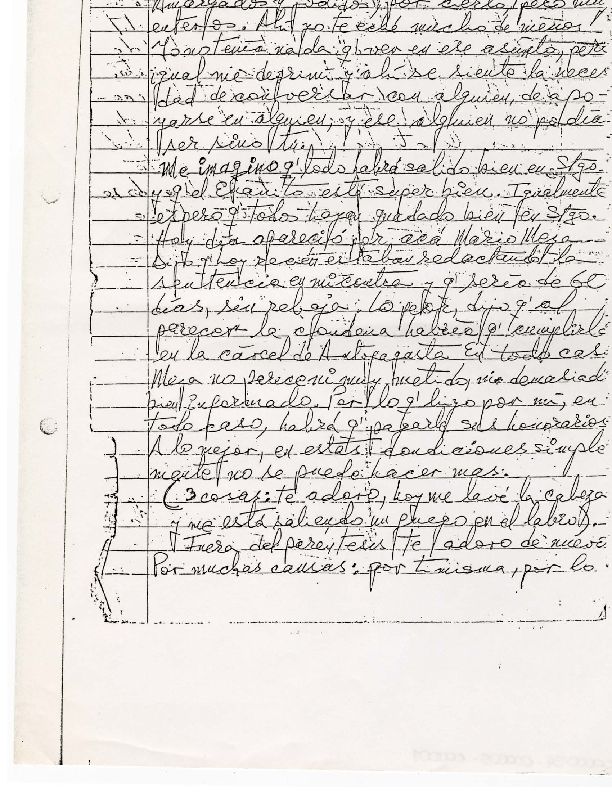 Amargados y jodidos, por cierto, pero muy
enteros. Ahí no te eché mucho de menos.
Yo no tenía nada q' ver en ese asunto, pero
igual me deprimí y ahí se siente la neces
dad de conversar con alguien, de apo-
yarse en alguien; y ese alguien no podía
ser sino tú.
Me imagino q' todo habrá salido bien en Stgo.
y q' el está super bien. Igualmente
espero q' todos hayan quedado bien en Stgo.
Hoy día apareció por acá Mario Mesa
Dijo q' hoy recién estaban redactando la
sentencia en mi contra y q' sería de 60
días, sin rebaja; lo peor, dijo q' al
parecer la condena habría q' cumplirla
en la cárcel de Antofagasta. En todo caso
Mesa no parece ni muy metido, ni demasiad
bien informado. Por lo q' hizo por mí, en
todo caso, habrá q' pagarle sus honorarios
A lo mejor, en estas condiciones simple
mente no se puede hacer más.
(3 cosas: te adoro, hoy me lavé la cabeza
y me está saliendo un fuego en el labio).-
Fuera del paréntesis te adoro de nuevo
Por muchas causas: por ti misma, por lo